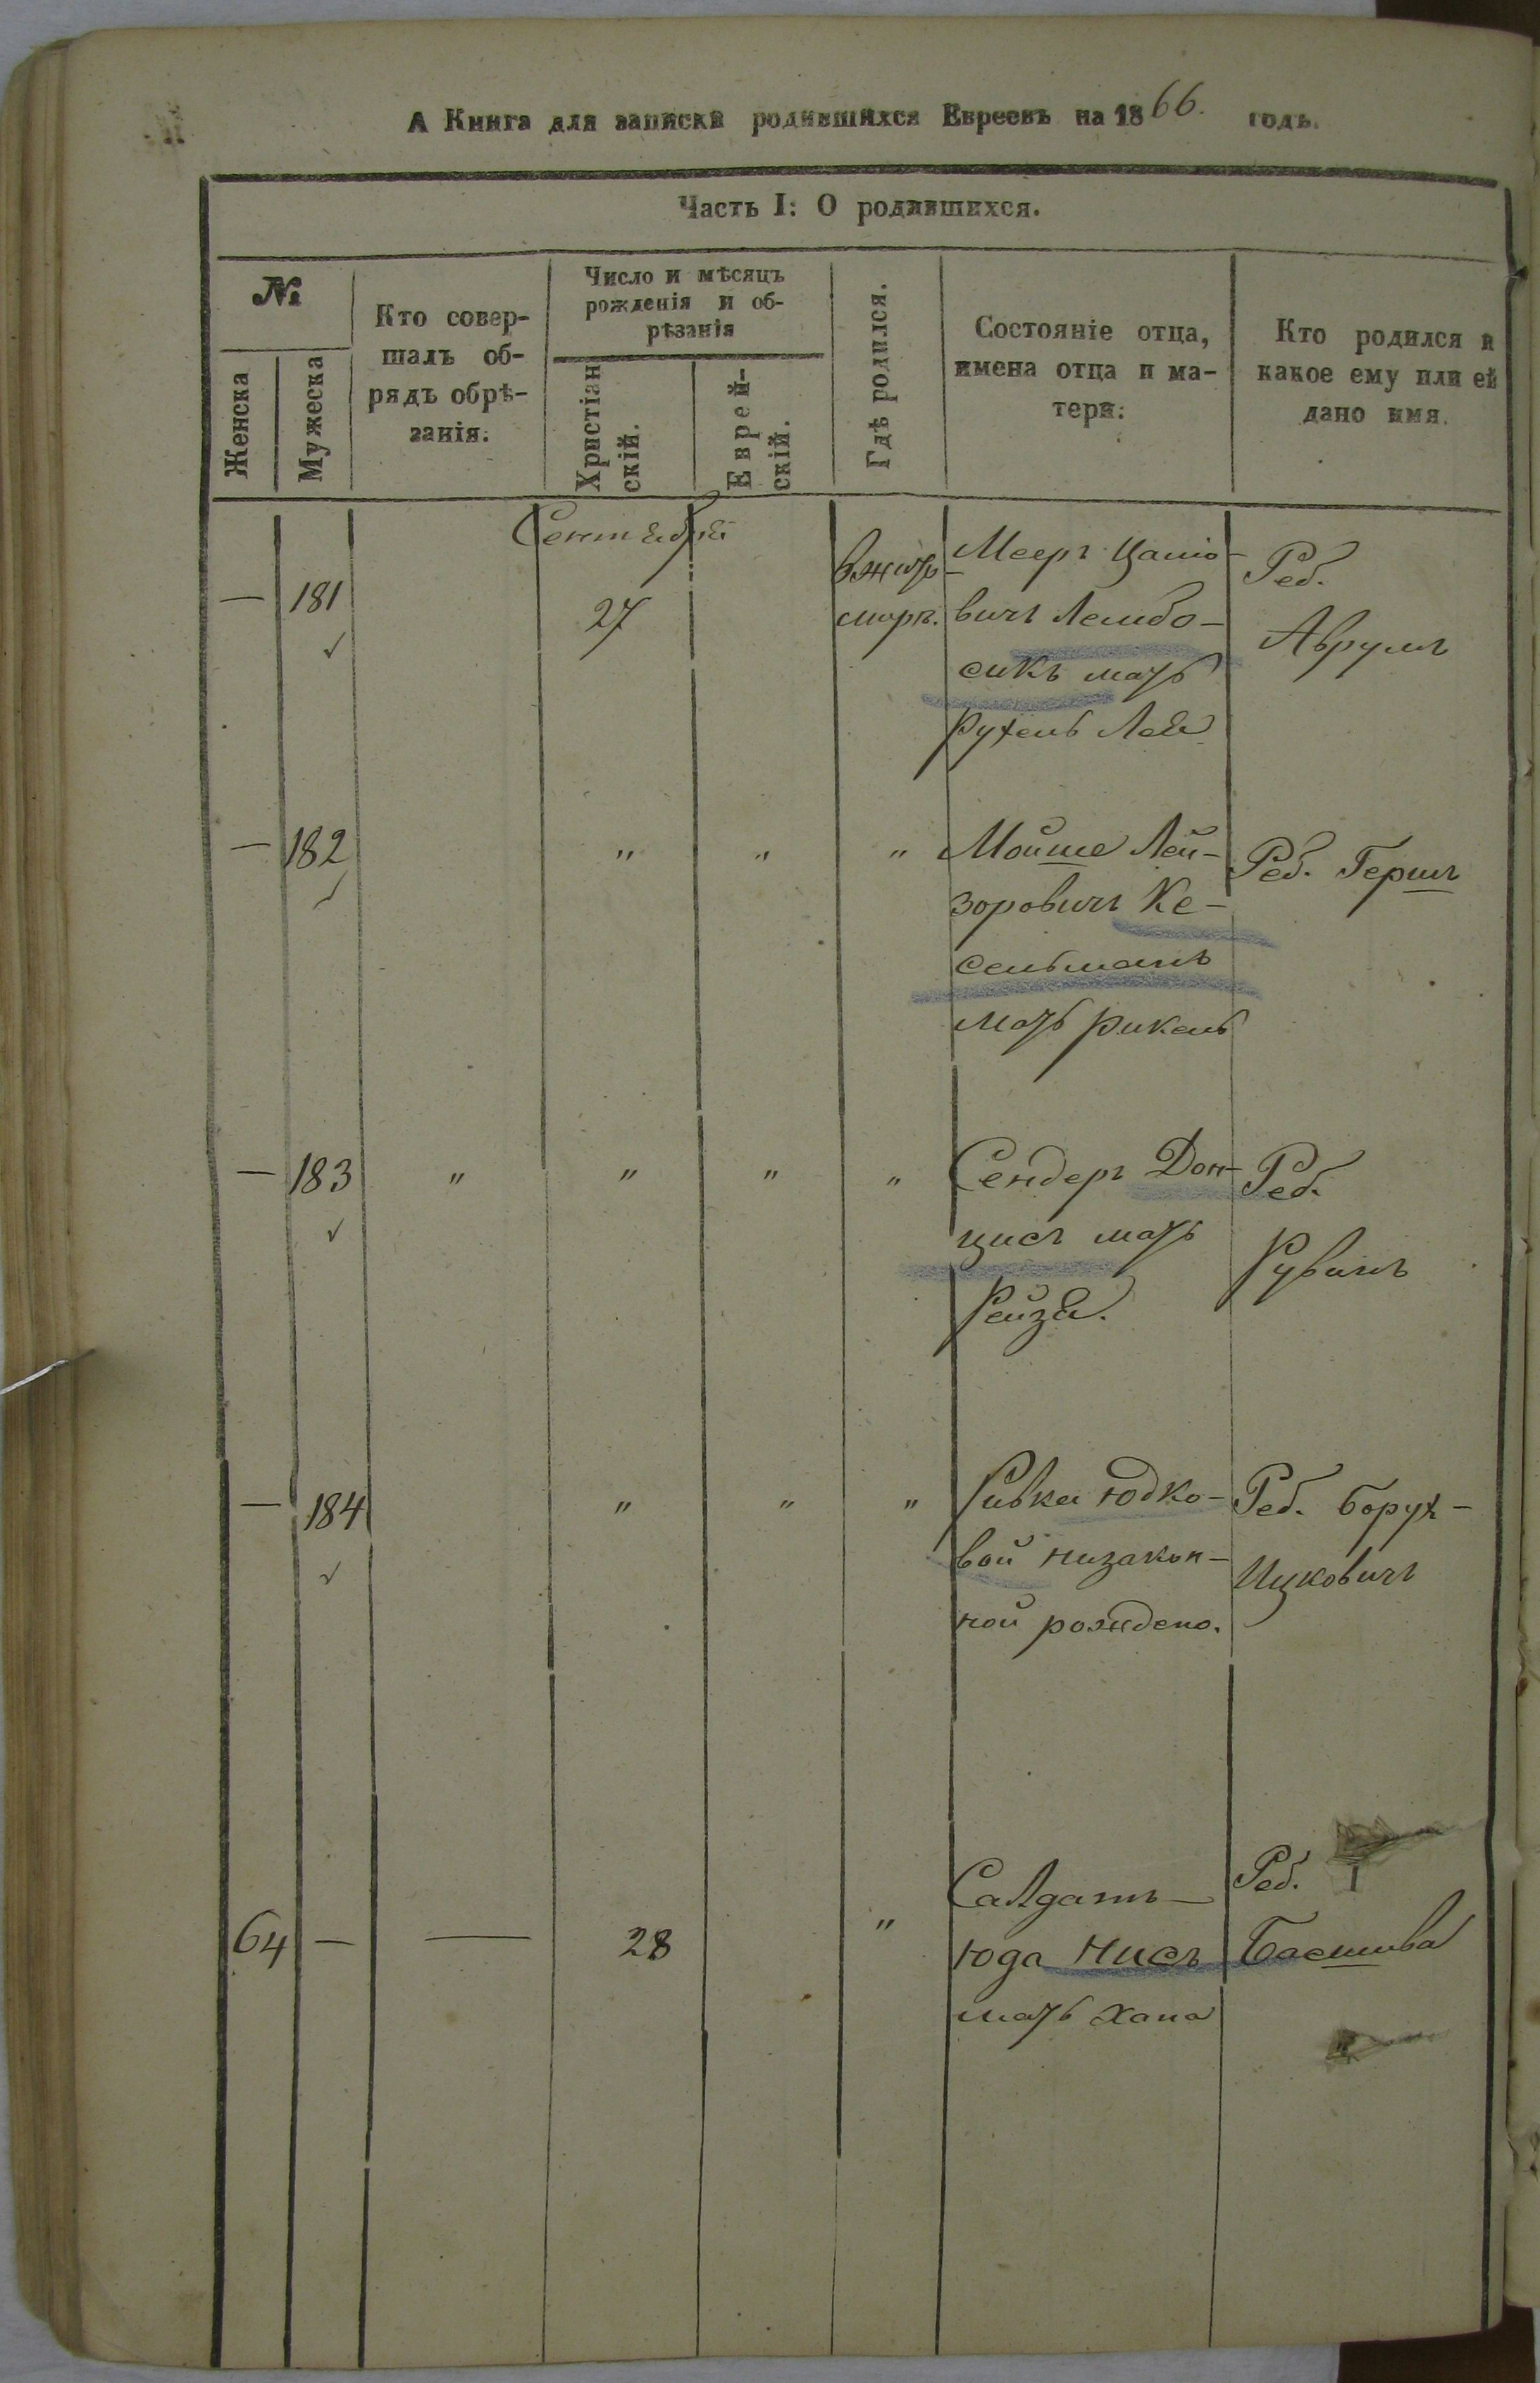 А Книга для записки родившихся Евреевъ на 1866. годъ.
Часть I: О родившихся.
№
Женска
Мужеска
Кто совер-
шалъ об-
рядъ обрѣ-
занія.
Число и мѣсяцъ
рожденія и об-
рѣзанія
Христіан
скій.
Еврей-
скій.
Гдѣ родился.
Состояніе отца,
имена отца и ма-
тери.
Кто родился и
какое ему или еѣ
дано имя.
Сентября
— 181 27
в жито
мирѣ.
Меерг
вичъ Лембо-
сикъ мать
Рухель Лея
Реб.
Аврумъ
— 182 " " "
Мойше Лей-
зоровичъ Ке-
сельманъ
мать Рикель
Реб. Гершъ
— 183 " " " "
Сендеръ Дон-
цисъ мать
Рейзя.
Реб.
Рувинъ
— 184 " " "
Ривка Юдко-
вой низакон-
ной рождено.
Реб. Борух-
Ицковичъ
64 — — 28 "
Салдатъ—
Юда Нисъ
мать Хана
Реб.
Басшива